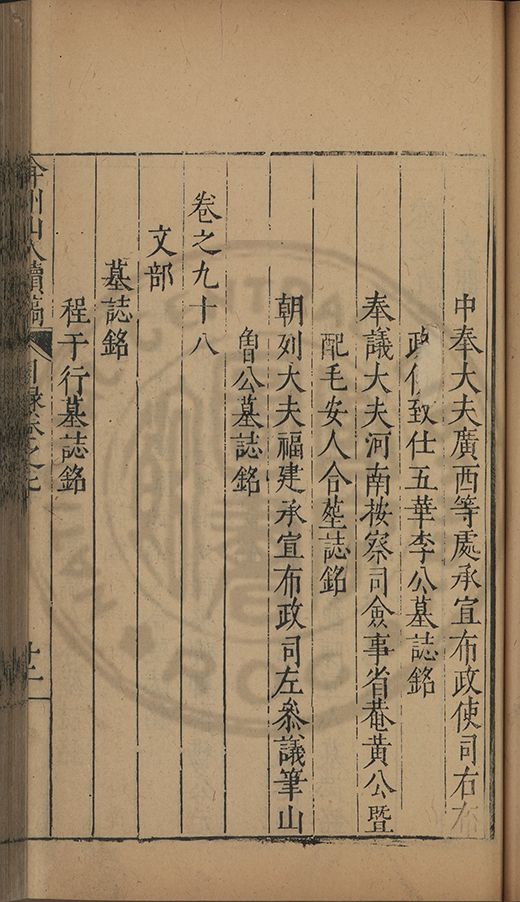 中奉大夫廣西等處承宣布政使司右布
政使致仕五華李公墓誌銘
奉議大夫河南按察司僉事省菴黃公暨
配毛安人合塟誌銘
朝列大夫福建承宣布政司左叅議筆山
魯公墓誌銘
卷之九十八
文部
墓誌銘
程于行墓誌銘
弇州山人續稿 目錄卷之七